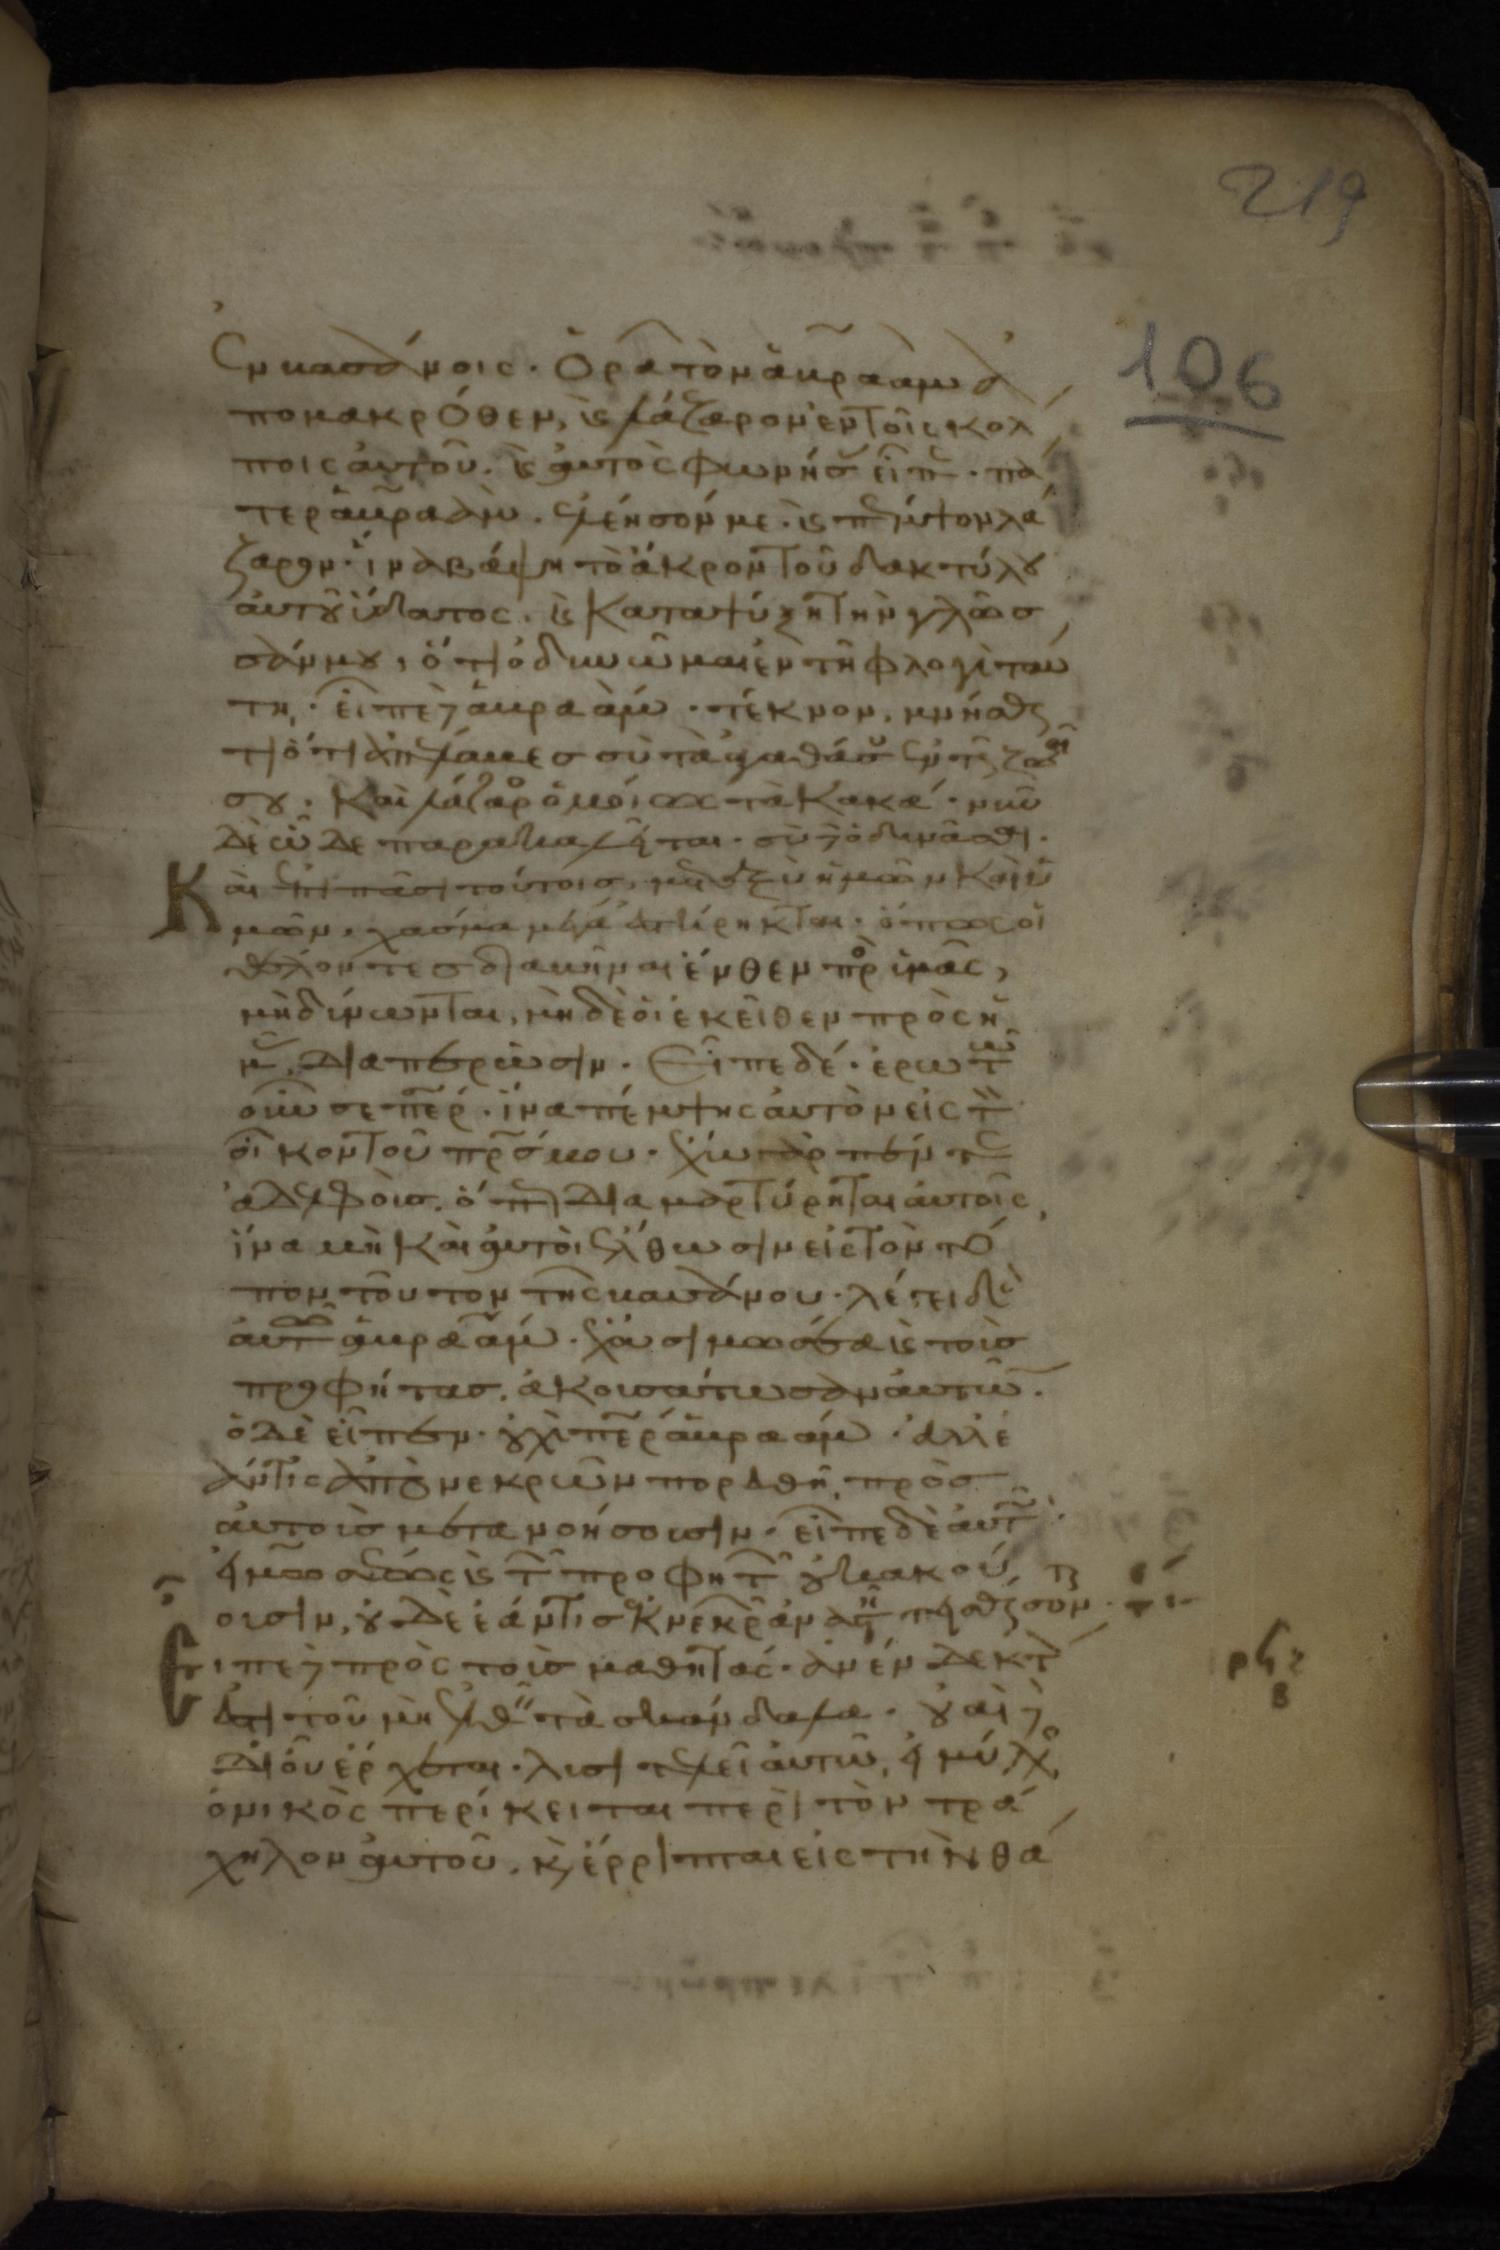 219
106
ἐν βασάνοις· ὁρᾶ τὸν ἀβραὰμ ἀ
πομακρόθεν, κ λάζαρον ἐν τοῖς κολ
ποις αὐτοῦ. κ αὐτὸς φωνήσ εἶπ· πά
τερ ἀβραὰμ. ἐλέησόν με· κ πέμψον λά
ζαρον· ἵνα βάψη τὸ ἄκρον τοῦ δακτύλου
αὐτοῦ ὕδατος. κ καταψύξη τὴν γλῶσ
σάν μου, ὅτι ὀδυνῶμαι ἐν τῆ φλογὶ ταύ
τη· εἶπε δὲ ἀβραὰμ· τέκνον, μνήσθη
τι ὅτι ἀπέλαβες σὺ τὰ ἀγαθά σου ἐν τῆ ζωῆ
σου. καὶ λάζαρο ὁμοίως τὰ κακά· νῦν
δὲ ὧδε παρακαλεῖται· σὺ δὲ ὀδυνᾶσαι.
Και ἐπὶ πᾶσι τούτοις, μεταξὺ ἡμῶν καὶ ὑ
μῶν, χάσμα μέγα ἐστήρικται· ὅπως οἱ
θέλοντες διαβῆναι ἔνθεν πρὸ ὑμᾶς,
μὴ δύνωνται, μηδὲ οἱ ἐκεῖθεν πρὸς ἡ
μ, διαπερῶσιν. Εἶπε δέ· ἐρωτῶ
οὖν σε περ. ἵνα πέμψης αὐτὸν εἰς τ
οἶκον τοῦ πρσ μου. ἔχω γὰρ πέντε
ἀδελφούς. ὅπ διαμαρτύρηται αὐτοῖς,
ἵνα μὴ καὶ αὐτοὶ ἔλθωσιν εἰς τὸν τό
πον τοῦτον τῆς βασάνου. λέγει δὲ
αὐτῶ ἀβραάμ· ἔχουσι μωσέα κ τοὺς
προφήτας. ἀκουσάτωσαν αὐτῶν.
ὁ δὲ εἶπεν· οὐχὶ περ ἀβραάμ· ἀλλ ἐ
άν τις ἀπὸ νεκρῶν πορευθῆ πρὸς
αὐτοὺς μετανοήσουσιν. εἶπε δὲ αὐτ
εἰ μωσέως κ τ προφητ οὐκ ἀκού
ουσιν, οὐδὲ ἐάν τις ἐκ νεκρ ἀναστῆ πεισθήσον·
Ειπε δὲ πρὸς τοὺς μαθητάς· ἀνένδεκτ
ἐστι τοῦ μὴ ἐλθ τὰ σκάνδαλα. οὐαὶ δὲ
δι οὗ ἔρχεται. λυσιτελεῖ αὐτῶ, εἰ μύλο
ονικὸς περίκειται περὶ τὸν τρά
χηλον αὐτοῦ. κ ἔρριπται εἰς τὴν θά